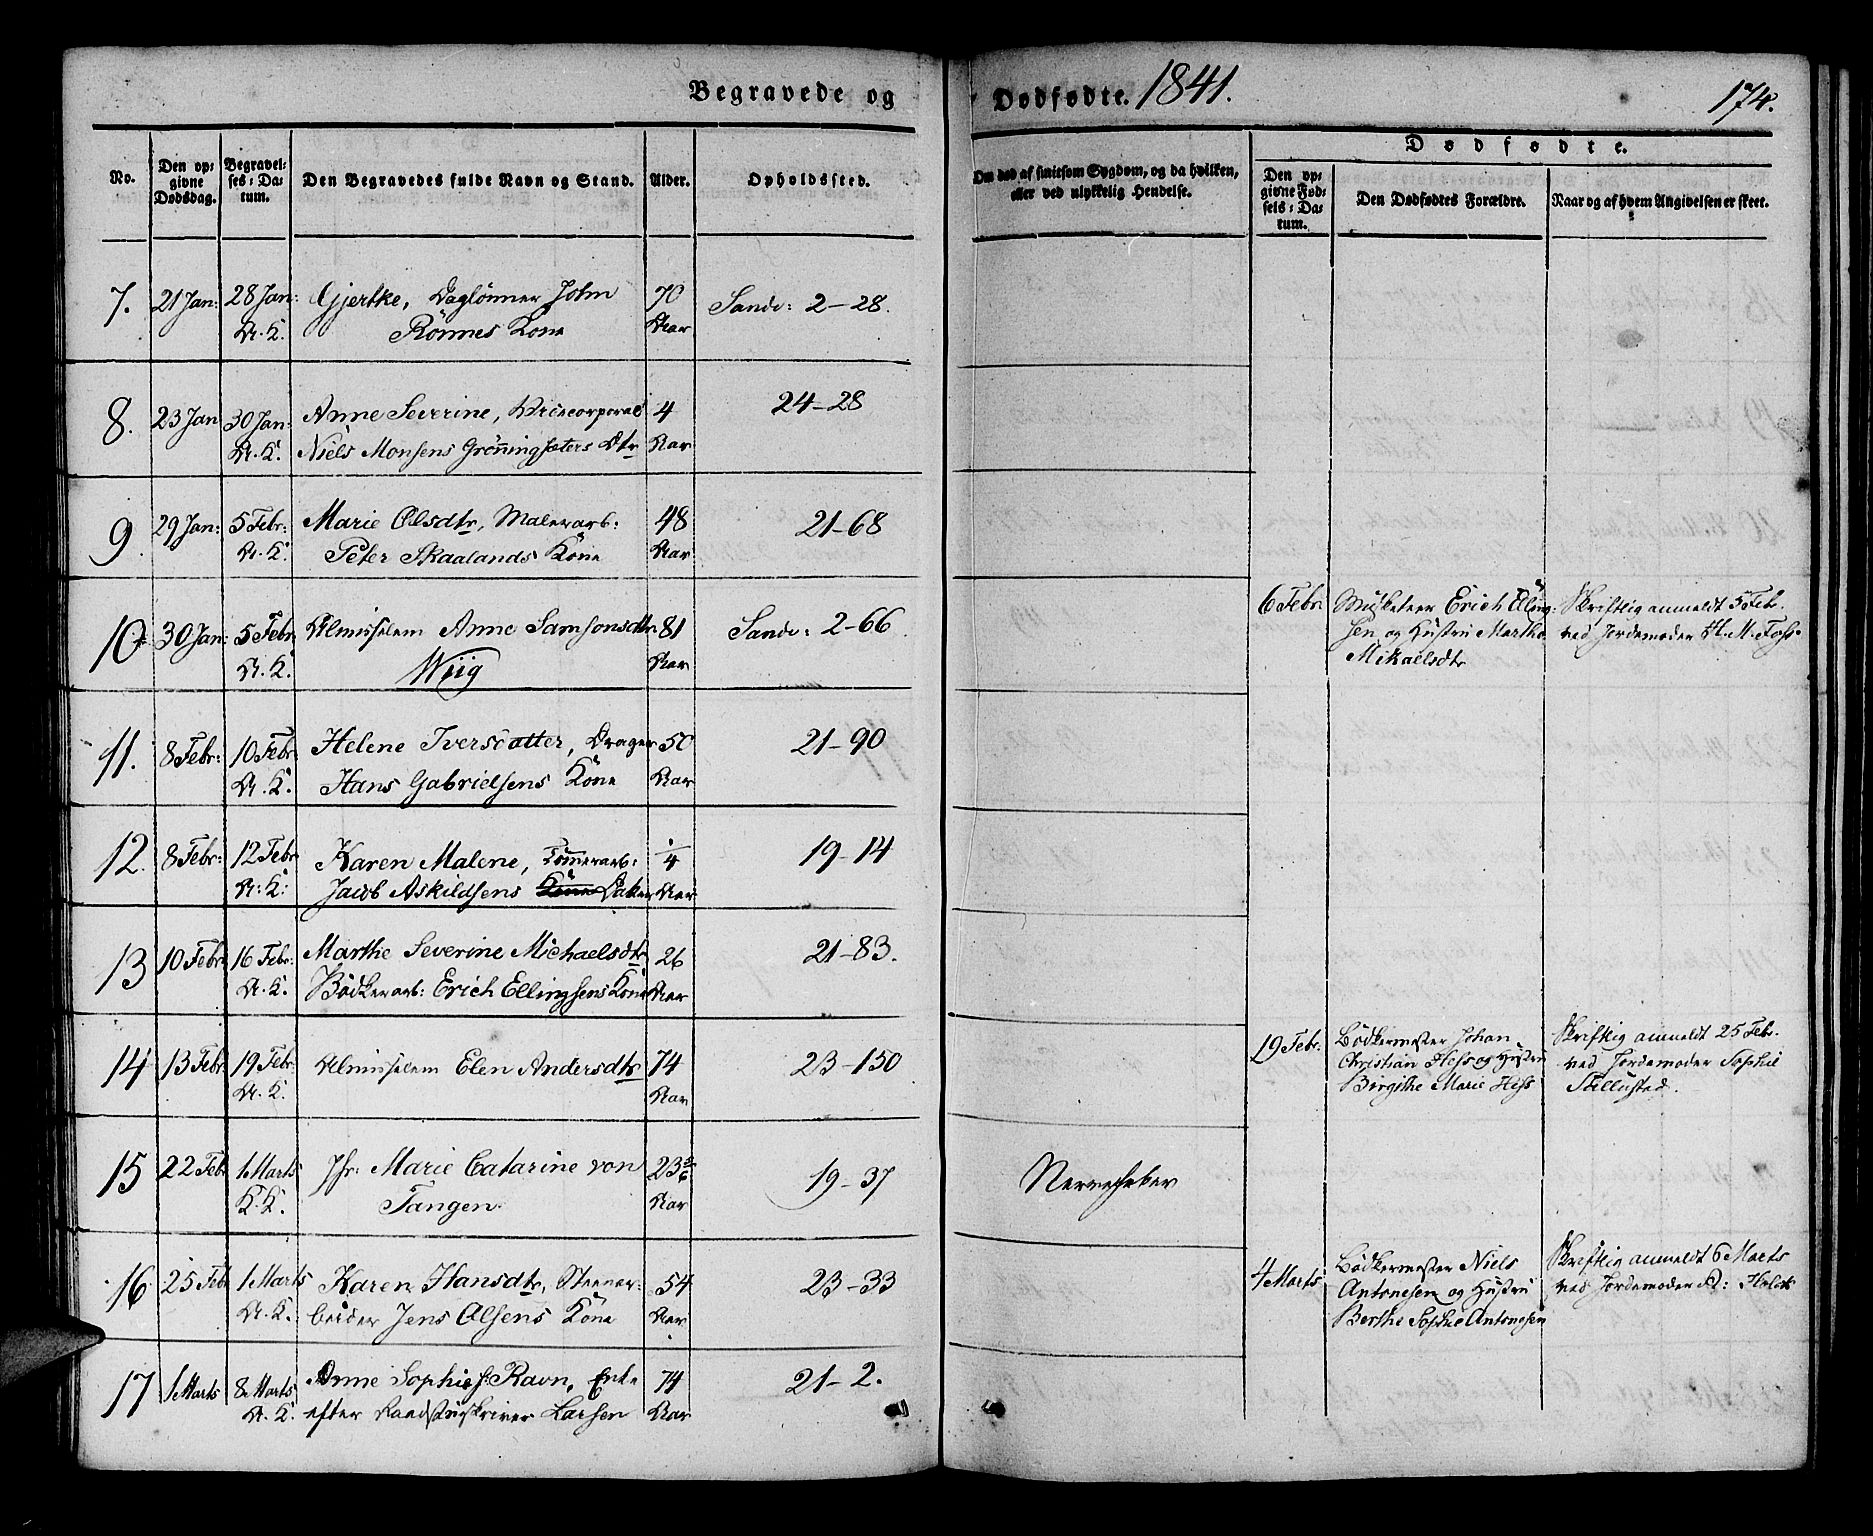 Begravede og Dødfødte. 1841. 174.
No.
Den op-
givne
Dødsdag.
Begravel-
ses-Da-
tum.
Den Begravedes fulde Navn og Stand.
Alder.
Opholdssted.
Om død af smitsom Sygdom, og da hvilken,
eller ved ulykkelig Hendelse.
Dødfødte.
Den op-
givne Fød-
sels-Da-
tum.
Den Dødfødtes Forældre.
Naar og af hvem Angivelsen er skeet.
7. 21 Jan: 28 Jan: Gjertke, Daglönner John 70 Sandv: 2-28.
K. Rönnes Kone Aar
8. 23 Jan 30 Jan: Anne Severine, 4 24-28
K. Niels Monsens Grönningsæters Dtr Aar
9. 29 Jan: 5 Febr: Marie Olsdtr, Malerarb: 48 21-68
K. Peter Skaalands Kone Aar
10. 30 Jan: 5 Febr Almisselem Anne Samsonsdtr 81 Sandv: 2-66
K. Wiig Aar
6 Febr: Musketeer Erich Elling- Skriftlig anmeldt 5 Feb.
sen og Hustru Marthe ved Jordemoder H. M. Foss.
Mikaelsdtr
11. 8 Febr: 10 Febr Helene Iversdatter, Drager 50 21-90
K. Hans Gabrielsens Kone Aar
12. 8 Febr: 12 Febr Karen Malene, Tömmerarb: 1/4 19-14
K: Jacob Askildsens Kone Datter Aar
13 10 Febr 16 Febr: Marthe Severine Michaelsdtr 26 21-83.
K. Bödkerarb: Erich Ellingsens Kone Aar
14 13 Febr 19 Febr: Almisselem Elen Andersdtr 74 23-150
K. Aar
19 Febr: Bödkermester Johan Skriftlig anmeldt 25 Feb.
Christian Hess og Hustru ved Jordemoder Sophie
Birgithe Marie Hess
15 22 Feb 1 Marts Jfr: Marie Catarine von 23 5/6 19-37 Nervefeber
K. K. Tangen Aar
16 25 Feb 1 Marts Karen Hansdtr, Steenar- 54 23-33
K. beider Jens Olsens Kone Aar
4 Marts Bödkermester Niels Skriftlig anmeldt 6 Marts
Antonesen og Hustru ved Jordemoder
Berthe Sophie Antonesen
17 1 Marts 8 Marts Anne Sophie f: Ravn, Enke 74 21-2.
K. efter Raadstuskriver Larsen Aar